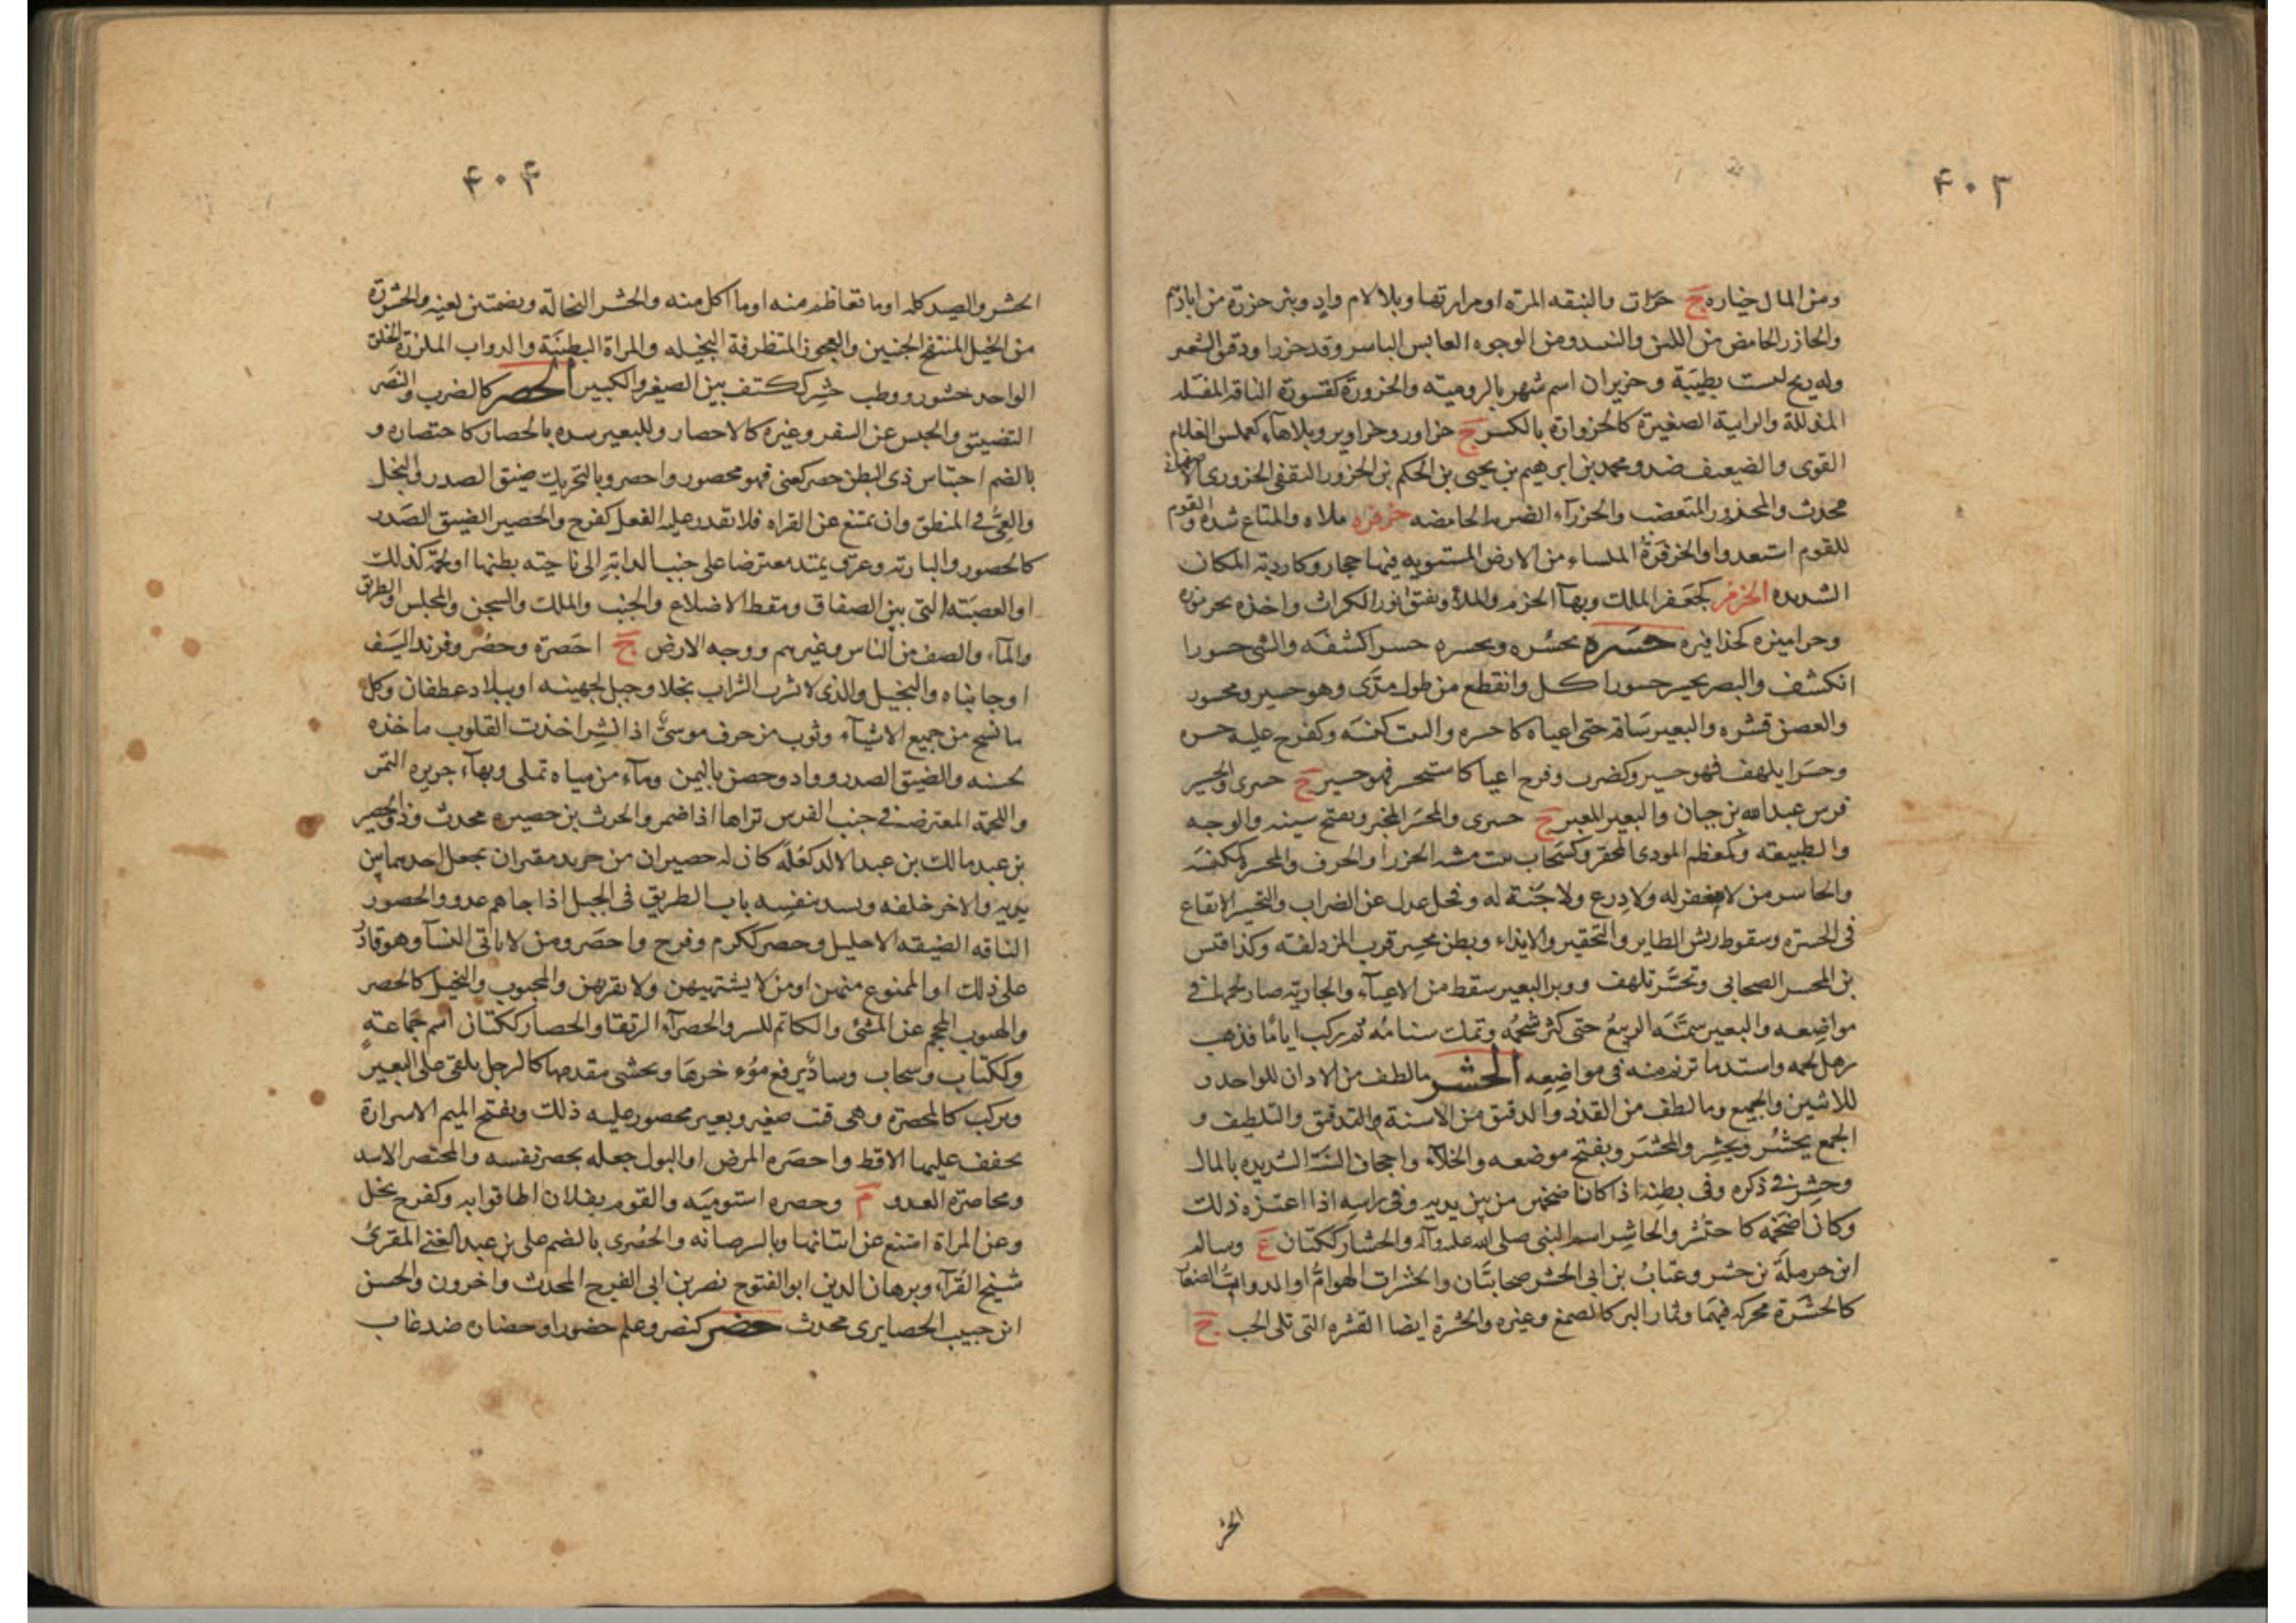 ۴۰۳
ومن المال خياره ج حزرات والنبقه المرّه او مرارتها وبلا لام وادٍ وبئر حزرة من ابارهم
والحازر الحامض من اللبن والنبيذ ومن الوجوه العابس الباسر وقد حزرا ودقيق الشعير
وله ريح ليست بطيّبة وحزيران اسم شهر بالروميّه والحزورة كقسورة الناقة المقتله
المذللة والرابية الصغيرة كالحزوارة بالكسر ج حزاور وحزاوير وبلا هاء كعملس الغلام
القوى والضعيف ضد ومحمد بن ابرهيم بن يحيى بن الحكم بن الحزور الثقفى الحزورى
محدث والمحزور المتغضب والحزرآء الضربه الحامضه حزفره ملاه والمتاع شده والقوم
للقوم استعدوا والحزفرة الملساء من الارض المستويه فيها حجاره وكاردبه المكان
الشديده الحزمر كجعفر الملك وبهآ الحزم والملأ وتفتق نور الكراث واخذه بحزموره
وحزاميره كحذافيره حسره يحسُره ويحسِره حسرا كشفه والشئ حسورا
انكشف والبصر يحسر حسورا كل وانقطع من طول مدًى وهو حسير ومحسور
والغصن قشره والبعير ساقه حتى اعياه كاحسره والبيت كنسه وكفرح عليه حسره
وحسَرا يلهف فهو حسير وكضرب وفرح اعيا كاستحسر فهو حسير ج حسرى والحسير
فرس عبدالله بن حيان والبعير المعيى ج حسرى والمحسَر المخبر ويفتح سينه والوجه
والطبيعته وكمعظم الموذى المحقر وكسَحاب نبت يشبه الجزر او الحرف والمحسرة المكنسَه
والحاسر من لا مغفر له ولا درع ولا جُنّة له وفحل عدل عن الضراب والتحسير الايقاع
فى الحسرة وسقوط ريش الطاير والتحقير والايذاء وبطن محسِر قرب المزدلفه وكذا قيس
بن المحسر الصحابى وتحسَّر تلهف ووبر البعير سقط من الاعيآء والجارية صار لحمها فى
مواضعه والبعير سمّنَه الربيعُ حتى كثر شحمُه وتمك سنامُه ثم ركب ايامًا فذهب
رهل لحمه واشتد ما تزيم منه فى مواضِعه الحشر ما لطف من الاذان للواحد و
للاثنين والجميع وما لطف من القذذ والدقيق من الاسنة والتدقيق والتلطيف و
الجمع يحشُر ويحشِر والمحشَر ويفتح موضعه والجلآء واجحاف السّنَة الشديده بالمال
وحشِر فى ذكره وفى بطنِه اذا كانا ضخمين من بين يديه وفى راسه اذا اعتزه ذلك
وكان اضخمَه كاحتُشر والحاشِر اسم النبى صلى الله عليه وآله والحشار ككتان ع وسالم
ابن حرملَة بن حشر وعتابُ بن ابى الحشر صحابيّان والحشرات الهوامُّ او الدوابّ الصغار
كالحشَرة محركه فيهما وثمار البر كالصمغ وغيره والحشرة ايضا القشره التى تلى الحب ج
الحشر
۴۰۴
الحشر والصيد كله او ما تعاظم منه او ما اكل منه والحشر النخالة وبضمتين لغيه والحشورة
من الخيل المنتفخ الجنبين والعجوز المتظرفة البخيله والمراة البطينَة والدواب الملززة الخلق
الواحد حشور ووطب حشِر ككتف بين الصغير والكبير الحصر كالضرب والنصَر
التضييق والحبس عن السفر وغيره كالاحصار وللبعير شده بالحصار كاحتصاره و
بالضم احتباس ذى البطن حصر كعنى فهو محصور واحصر وبالتحريك ضيق الصدر والبخل
والعِىّ فى المنطق وان يمتنع عن القراه فلا تقدر عليه الفعل كفرح والحصير الضيق الصَدر
كالحصور والبارية وعرق يمتد معترضا على جنب الدابة الى ناحيته بطنها او لحمة كذلك
او العصبَته التى بين الصفاق ومقط الاضلاع والجنب والملك والسجن والمجلس والطريق
والمآء والصف من الناس وغيرهم ووجه الارض ج احصرة وحصُر وفرند السَيف
او جانباه والبخيل والذى لا يشرب الشراب بخلا وجبل لجهينه او ببلاد غطفان وكل
ما نسج من جميع الاشيآء وثوب مزخرف موشىًّ اذا نُشِر اخذت القلوب ماخذه
لحسنه والضيق الصدر وواد وحصن باليمن ومآء من مياه تملى وبهآء جريره التمر
واللحمة المعترضة فى جنب الفرس تراها اذا ضمر والحرث بن حصيره محدث وذوالحصير
بن عبد مالك بن عبدالالد كعُلَهٍ كان له حصيران من جريد مقيران يجعل احدهما بين
يديه والاخر خلفه ويسد بنفسه باب الطريق فى الجبل اذا جاهم عدو والحصور
الناقه الضيقه الاحليل وحصر ككرم وفرح واحصَر ومن لا ياتى النسآ وهو قادر
على ذلك او الممنوع منهن او من لا يشتهيهن ولا يقربهن والمجبوب والبخيل كالحصر
والهيوب المحجم عن الشئ والكاتم للسر والحصرآء الرتقا والحصار ككتان اسم جَماعةٍ
وككتاب وسحاب وسادٌ يرفع مؤخرها ويحشى مقدمها كالرحل يلقى على البعير
ويركب كالمحصرة وهى قتب صغير وبعير محصور عليه ذلك وبفتح الميم الاسرارة
يجفف عليها الاقط واحصَره المرض او البول جعله يحصر نفسه والمحتصر الاسد
ومحاصرة العدو م وحصره استوعبَه والقوم بفلان اطافوا به وكفرح بخل
وعن المراة امتنع عن اتيانها وبالسر صانه والحُصْرى بالضم على بن عبد الغنى المقرئ
شيخ القرآء وبرهان الدين ابوالفتوح نصر بن ابى الفرج المحدث واخرون والحسن
ابن حبيب الحصايرى محدث حضر كنصر وعلم حضورا وحضاره ضد غاب